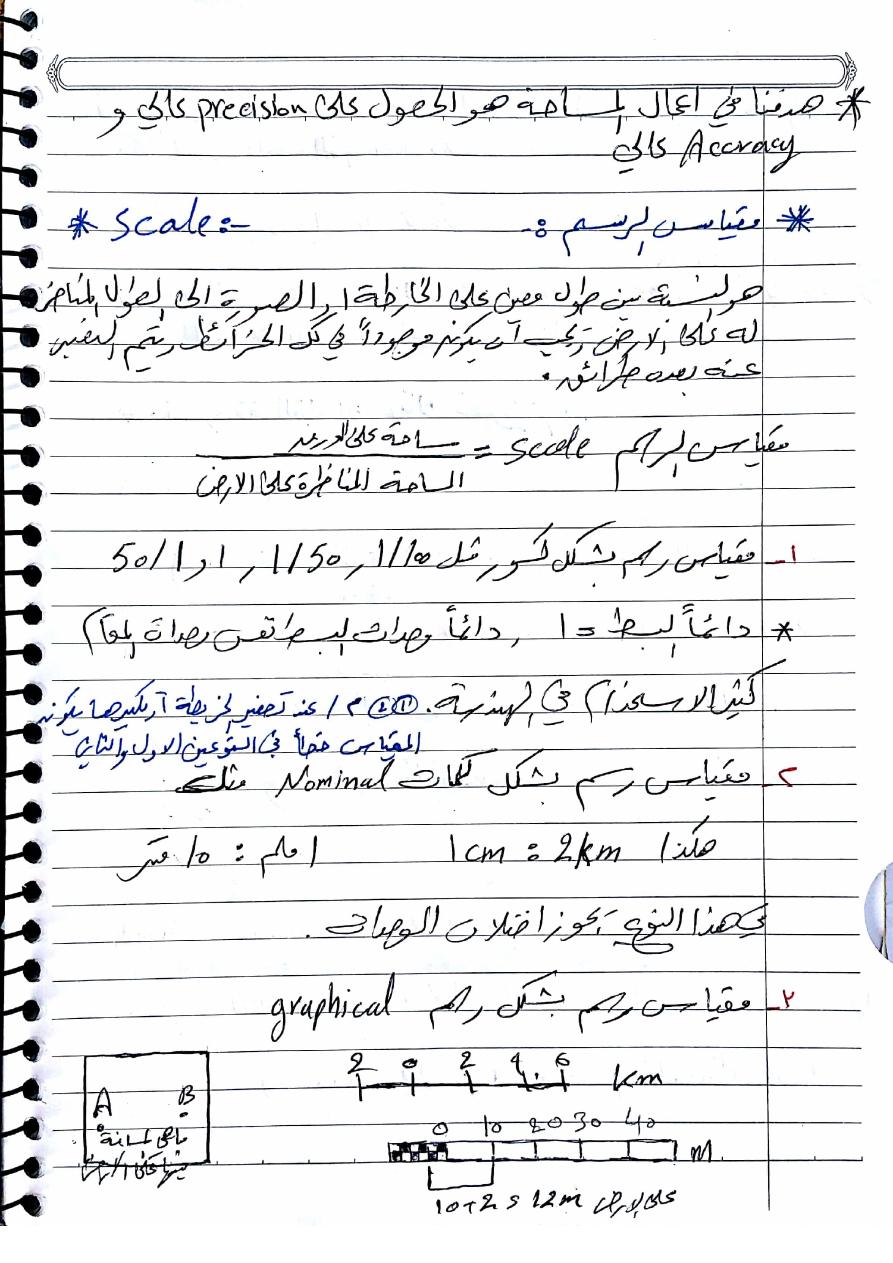 * هدفنا في اعمال المساحة هو الحصول على precision عالي و
Accracy عالي
* مقياس الرسم :- * Scale:-
هو النسبة بين طول معين على الخارطة او الصورة الى الطول المناظر
له على الارض ويجب أن يكون موجوداً في كل الخرائط ويتم التعبير
عنه بعده طرائق.
مقياس الرسم scale = مسافة على الورقة
المسافة المناظرة على الارض
١- مقياس رسم بشكل كسور مثل 1/100 و 1/50 و 1 او 50/1
* دائماً البسط = 1 , دائماً وحدات البسط نفس وحدات المقام
كثير الاستخدام في الهندسة. م / عند تصغير الخريطة أو تكبيرها يكون
المقياس خطأ في النوعين الاول والثاني
٢- مقياس رسم بشكل كلمات Nominal مثلا
هكذا 1cm : 2km 1 ملم : 10 متر
في هذا النوع يجوز اختلاف الوحدات.
٣- مقياس رسم بشكل رسم graphical
2 0 2 4 6 km
A B
0 10 20 30 40 m
ماهي المسافة
بينهما على الارض
10+2 = 12m على الارض